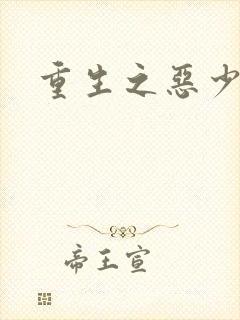 重生之惡少
帝王宣